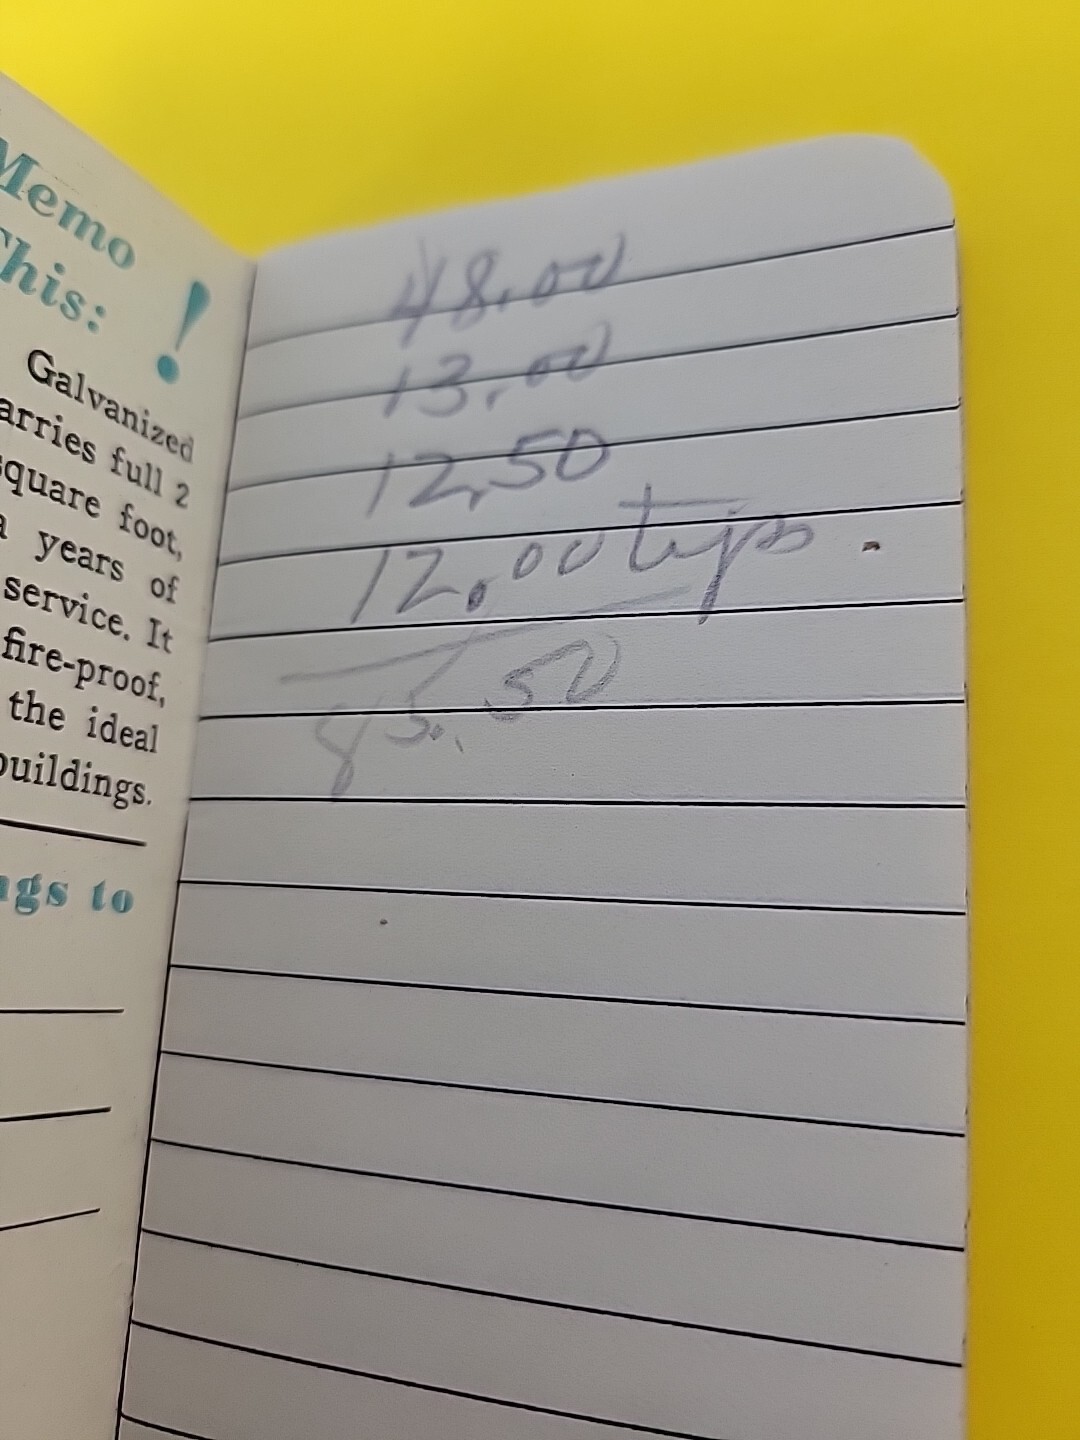 Memo
This:
!
Galvanized
arries full 2
square foot,
years of
service. It
fire-proof,
the ideal
buildings.
ngs to
48.00
13.00
12.50
12.00 tips
85.50